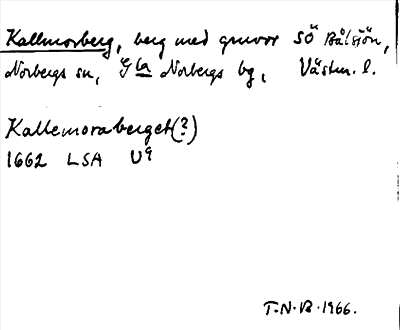 Kallmorberg, berg med gruvor SÖ Bålsjön,
Norbergs sn, Gla Norbergs bg, Västm. l.
Kallemoraberget(?)
1662 LSA U9
T.N.B. 1966.